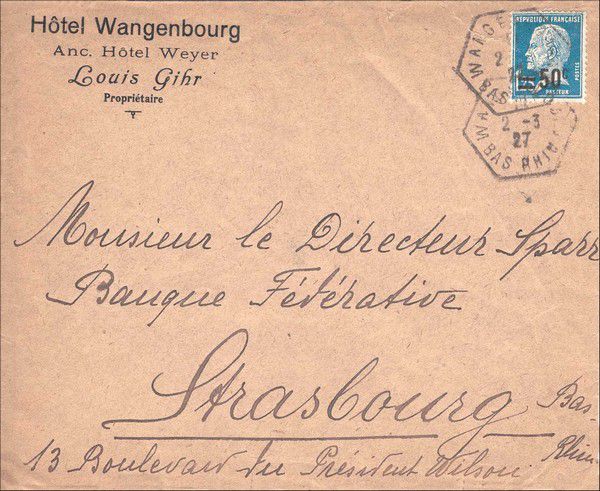 Hôtel Wangenbourg
Anc. Hôtel Weyer
Louis Gihr
Propriétaire
RÉPUBLIQUE FRANÇAISE
POSTES
=50c
PASTEUR
WANGE
2
BAS
WA
2 -3
27
BAS RHIN
Monsieur le Directeur Sparr
Banque Fédérative
Strasbourg
Bas-
Rhin
13 Boulevard du Président Wilson